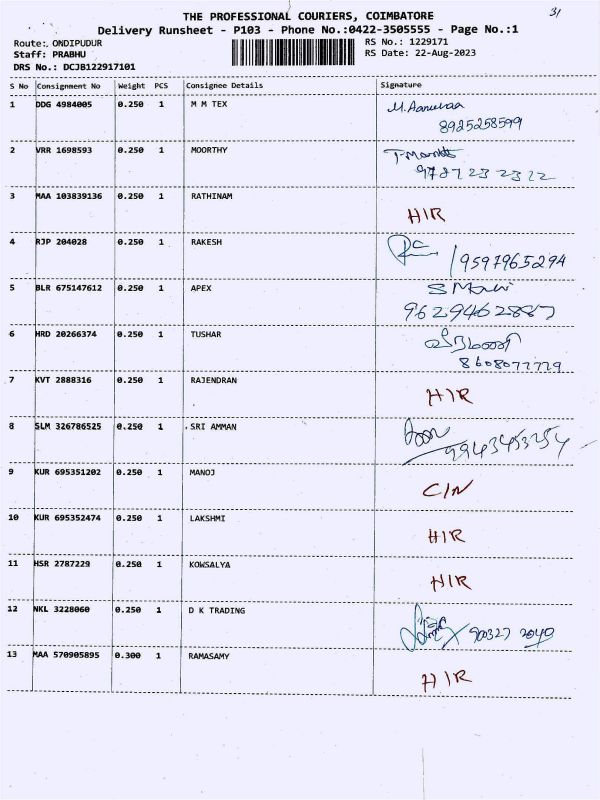 31
THE PROFESSIONAL COURIERS, COIMBATORE
Delivery Runsheet - P103 - Phone No.:0422-3505555 - Page No.:1
Route: ONDIPUDUR
RS No.: 1229171
Staff: PRABHU
RS Date: 22-Aug-2023
DRS No.: DCJB122917101
S No Consignment No Weight PCS Consignee Details Signature
1 DDG 4984005 0.250 1 M M TEX
8925258599
2 VRR 1698593 0.250 1 MOORTHY
9787232322
3 MAA 103839136 0.250 1 RATHINAM H/R
4 RJP 204028 0.250 1 RAKESH 9597965294
5 BLR 675147612 0.250 1 APEX S Mani
9629462887
6 HRD 20266374 0.250 1 TUSHAR
8608077729
7 KVT 2888316 0.250 1 RAJENDRAN H/R
8 SLM 326786525 0.250 1 SRI AMMAN 9943453254
9 KUR 695351202 0.250 1 MANOJ C/N
10 KUR 695352474 0.250 1 LAKSHMI H/R
11 HSR 2787229 0.250 1 KOWSALYA H/R
12 NKL 3228060 0.250 1 D K TRADING 90327 2040
13 MAA 570905895 0.300 1 RAMASAMY H/R